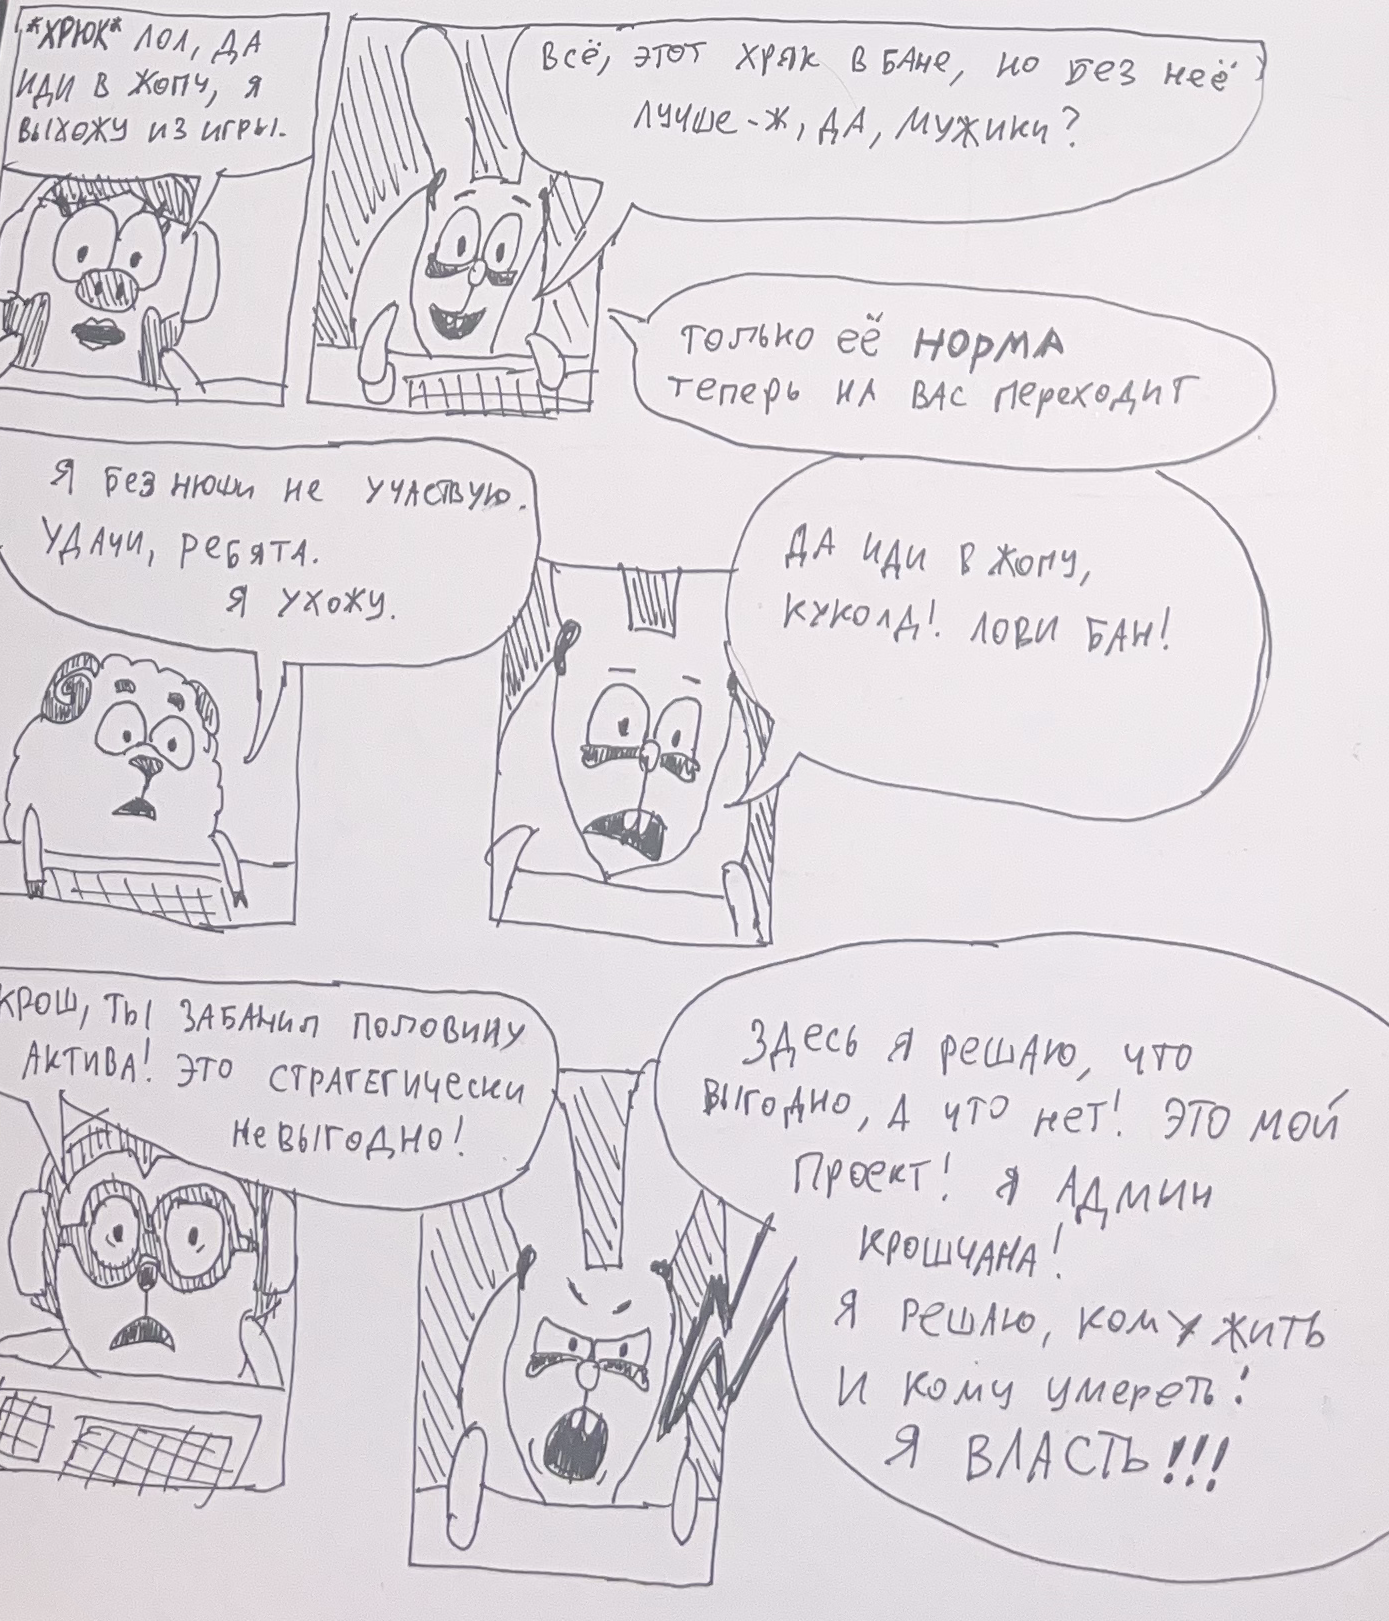 *ХРЮК* ЛОЛ, ДА
ИДИ В ЖОПУ, Я
ВЫХОЖУ ИЗ ИГРЫ.
ВСЁ, ЭТОТ ХРЯК В БАНЕ, НО БЕЗ НЕЁ
ЛУЧШЕ-Ж, ДА, МУЖИКИ?
ТОЛЬКО ЕЁ НОРМА
ТЕПЕРЬ НА ВАС ПЕРЕХОДИТ
Я БЕЗ НЮШИ НЕ УЧАСТВУЮ.
УДАЧИ, РЕБЯТА.
Я УХОЖУ.
ДА ИДИ В ЖОПУ,
КУКОЛД! ЛОВИ БАН!
КРОШ, ТЫ ЗАБАНИЛ ПОЛОВИНУ
АКТИВА! ЭТО СТРАТЕГИЧЕСКИ
НЕВЫГОДНО!
ЗДЕСЬ Я РЕШАЮ, ЧТО
ВЫГОДНО, А ЧТО НЕТ! ЭТО МОЙ
ПРОЕКТ! Я АДМИН
КРОШЧАНА!
Я РЕШАЮ, КОМУ ЖИТЬ
И КОМУ УМЕРЕТЬ!
Я ВЛАСТЬ!!!